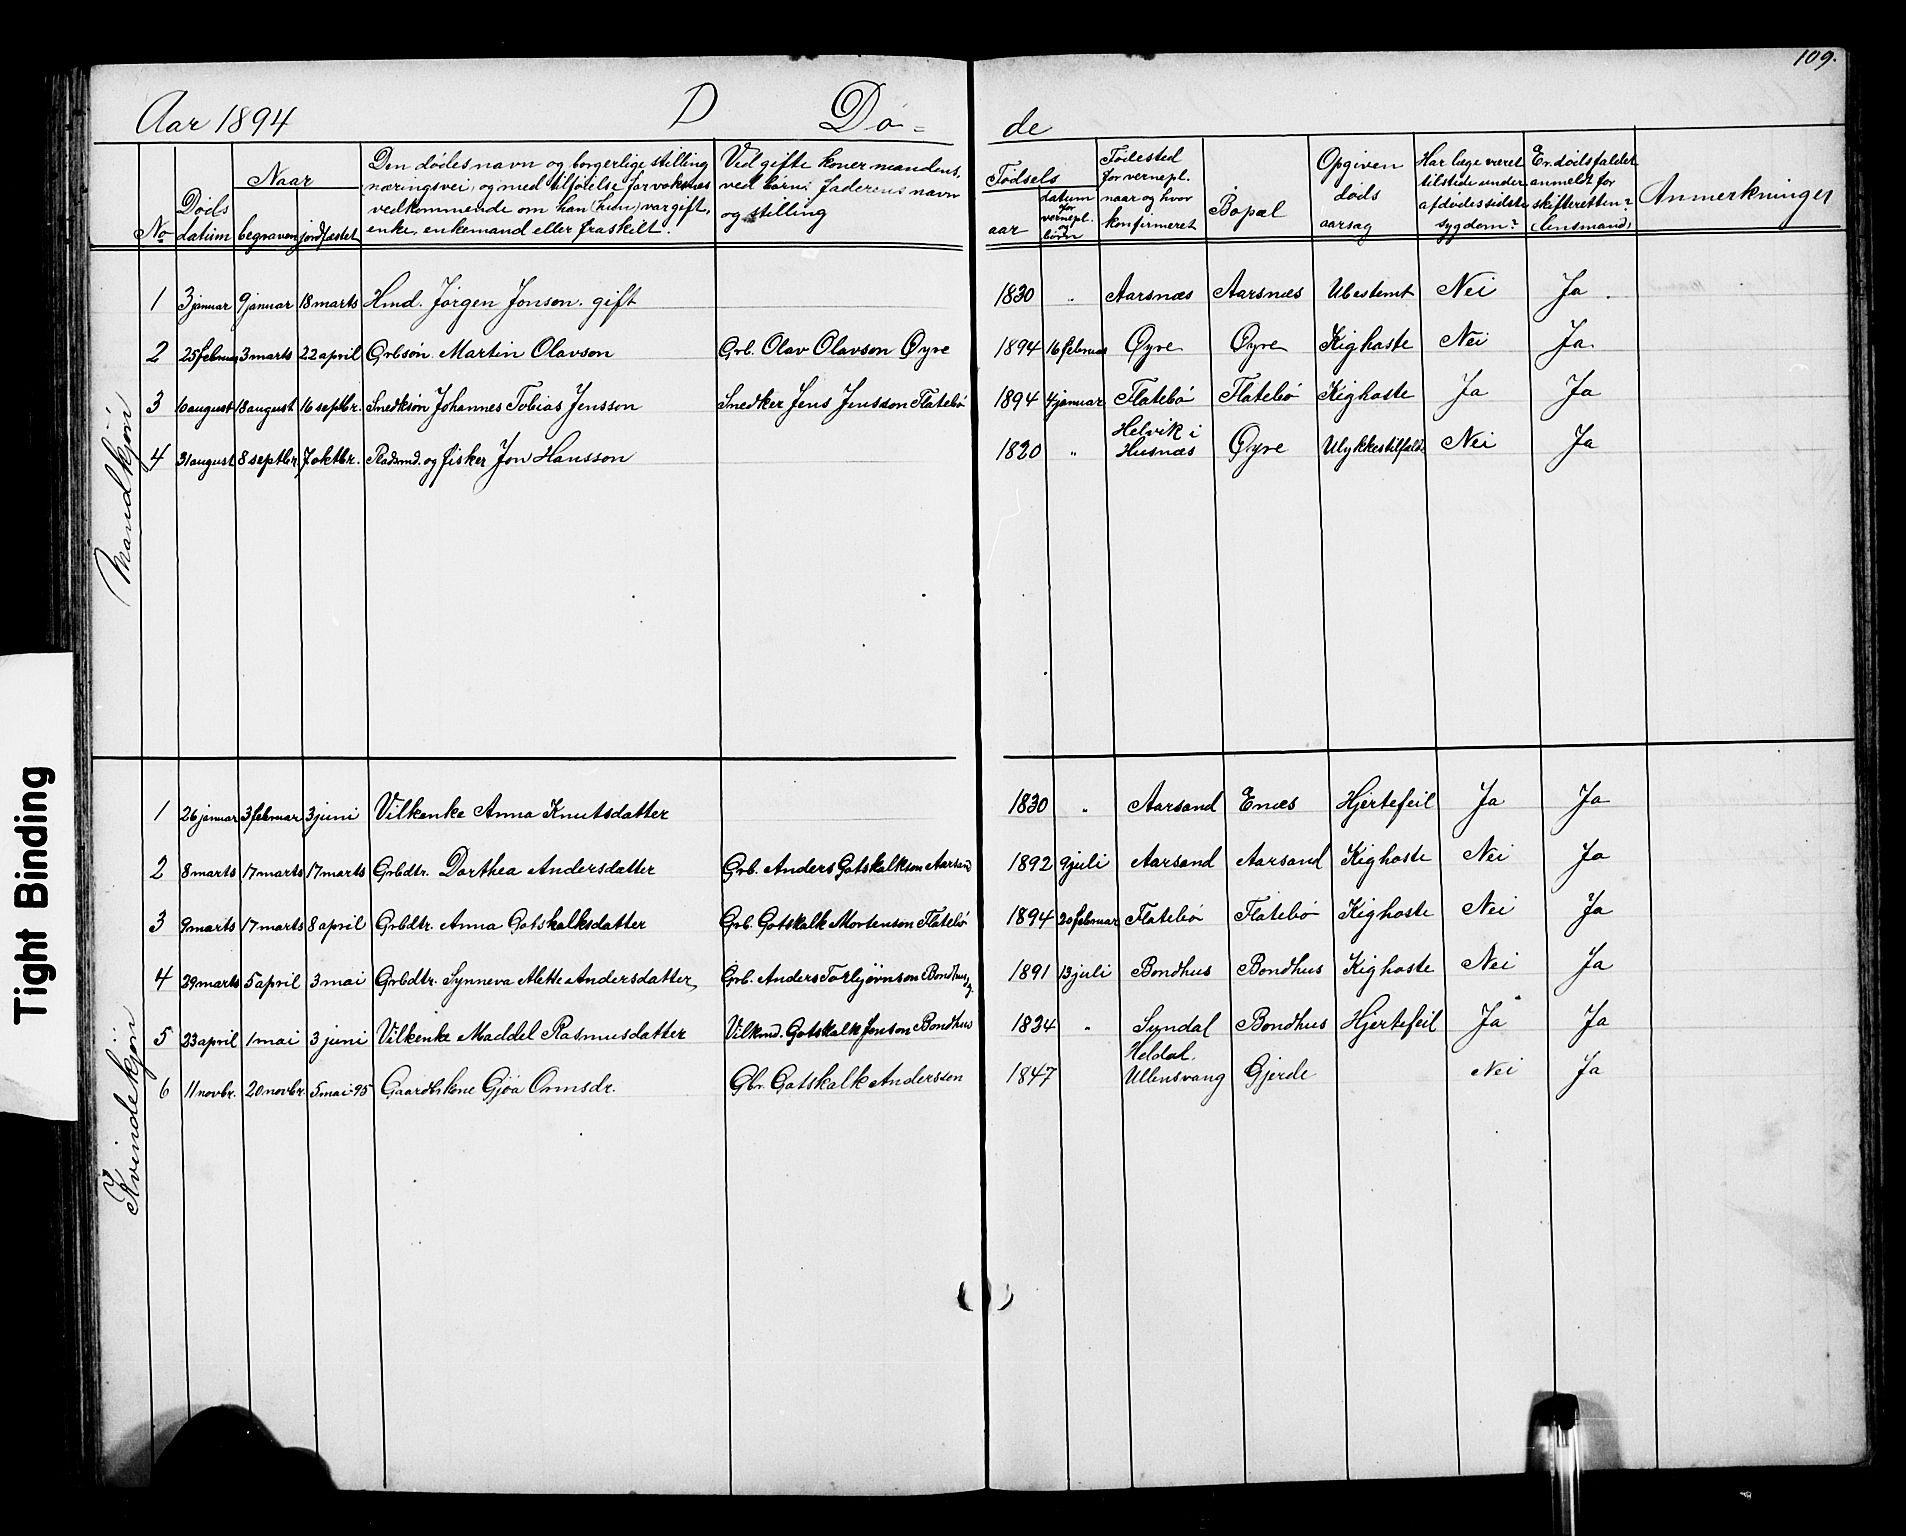 109.
Aar 1894 D Dø- de
No
Døds datum
Naar
begraven jordfæstet
Den dødes navn og borgerlige stilling
næringsvei, og med tilføielse for voksnes
vedkommende om han (hun) var gift,
enke, enkemand eller fraskilt.
Ved gifte koner mandens,
ved børn: faderens navn
og stilling
Fødsels
aar
datum for vernepl. og børn
Fødested
for vernepl.
naar og hvor
konfirmeret
Bopæl
Opgiven
døds
aarsag
Har læge været
tilstede under
afdødes sidste
sygdom?
Er dødsfaldet
anmeldt for
skifteretten?
(lensmand)
Anmerkninger
Mandkjøn
1 3 januar 9 januar 18 marts Hmd. Jørgen Jonson. gift 1830 " Aarsnæs Aarsnæs Ubestemt Nei Ja
2 25 februar 3 marts 22 april Grbsøn. Martin Olavson Grb. Olav Olavson Øyre 1894 16 februar Øyre Øyre Kighoste Nei Ja
3 10 august 18 august 16 septbr. Snedksøn Johannes Tobias Jensson Snedker Jens Jensson Flatebø 1894 4 januar Flatebø Flatebø Kighoste Ja Ja
4 31 august 8 septbr. 7 oktbr. Pladsmd. og fisker Jon Hansson 1820 " Helvik i
Husnæs Øyre Ulykkestilfælde Nei Ja
Kvindekjøn
1 26 januar 3 februar 3 juni Vilkenke Anna Knutsdatter 1830 " Aarsand Enæs Hjertefeil Ja Ja
2 8 marts 17 marts 17 marts Grbdtr. Dorthea Andersdatter Grb. Anders Gotskalkson Aarsand 1892 9 juli Aarsand Aarsand Kighoste Nei Ja
3 9 marts 17 marts 8 april Grbdtr. Anna Gotskalksdatter Grb. Gotskalk Mortenson Flatebø 1894 20 februar Flatebø Flatebø Kighoste Nei Ja
4 29 marts 5 april 3 mai Grbdtr. Synneva Alette Andersdatter, Grb. Anders Torbjørnson Bondhus 1891 13 juli Bondhus Bondhus Kighoste Nei Ja
5 23 april 1 mai 3 juni Vilkenke Maddel Rasmusdatter Vilkmd. Gotskalk Jonson Bondhus 1834 " Syndal Bondhus Hjertefeil Ja Ja
6 11 novbr. 20 novbr. 5 mai 95 Gaardbr.kone Gjøa Ormsdr. Gbr. Gotskalk Andersson 1847 Heldal.
Ullensvang Gjerde Nei Ja
Tight Binding